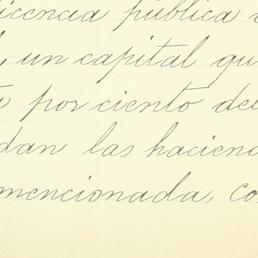 licencia pública
, un capital qu
por ciento del
dan las haciend
mencionada, co